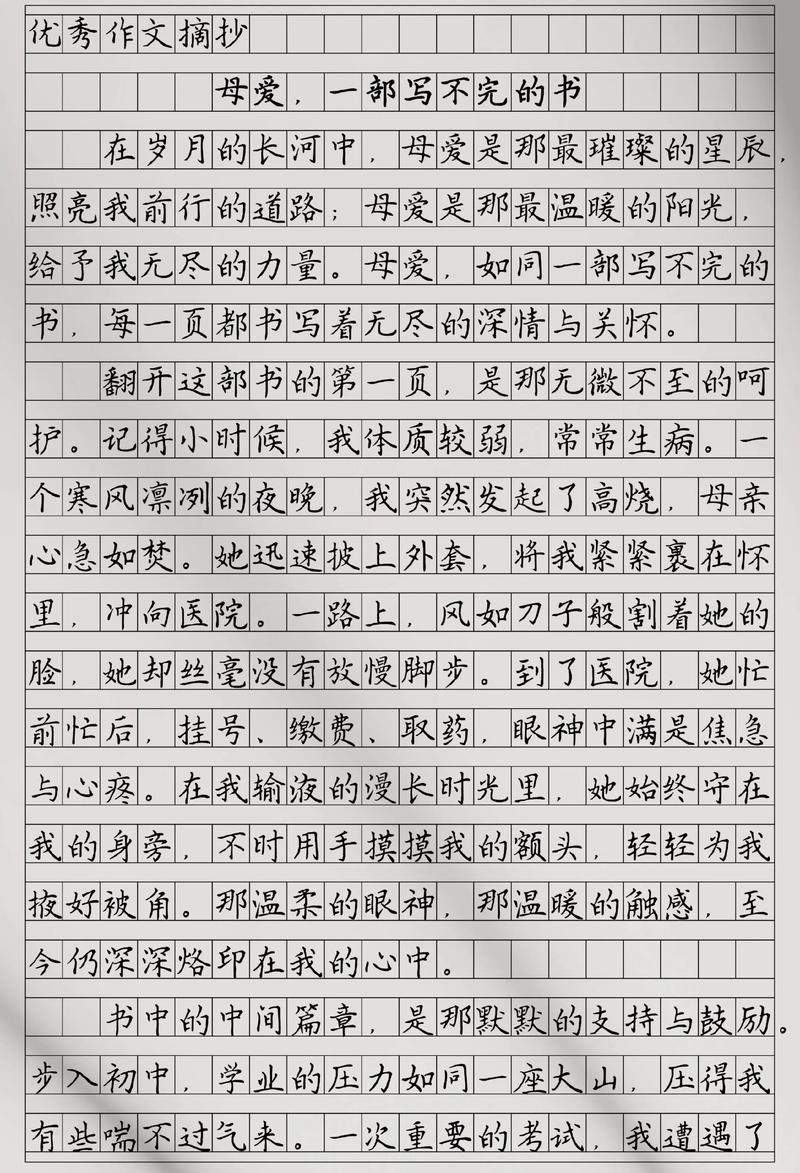 优秀作文摘抄
母爱，一部写不完的书
在岁月的长河中，母爱是那最璀璨的星辰，
照亮我前行的道路；母爱是那最温暖的阳光，
给予我无尽的力量。母爱，如同一部写不完的
书，每一页都书写着无尽的深情与关怀。
翻开这部书的第一页，是那无微不至的呵
护。记得小时候，我体质较弱，常常生病。一
个寒风凛冽的夜晚，我突然发起了高烧，母亲
心急如焚。她迅速披上外套，将我紧紧裹在怀
里，冲向医院。一路上，风如刀子般割着她的
脸，她却丝毫没有放慢脚步。到了医院，她忙
前忙后，挂号、缴费、取药，眼神中满是焦急
与心疼。在我输液的漫长时光里，她始终守在
我的身旁，不时用手摸摸我的额头，轻轻为我
掖好被角。那温柔的眼神，那温暖的触感，至
今仍深深烙印在我的心中。
书中的中间篇章，是那默默的支持与鼓励。
步入初中，学业的压力如同一座大山，压得我
有些喘不过气来。一次重要的考试，我遭遇了